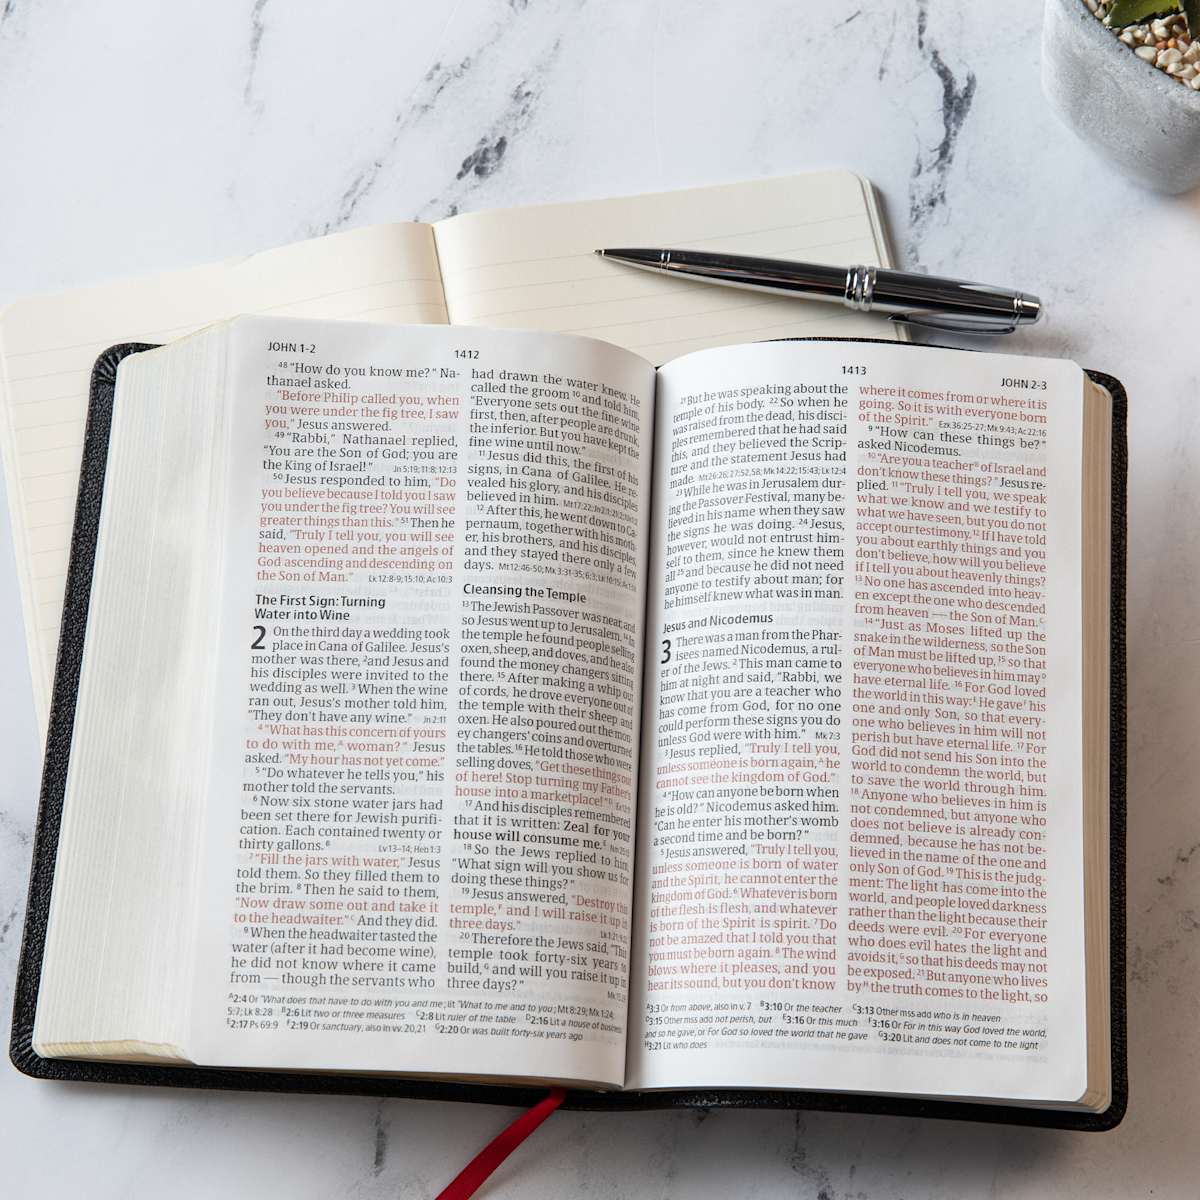 JOHN 1-2
1412
48 “How do you know me?” Na-
thanael asked.
“Before Philip called you, when
you were under the fig tree, I saw
you,” Jesus answered.
49 “Rabbi,” Nathanael replied,
“You are the Son of God; you are
the King of Israel!” Jn 5:19; 11:8; 12:13
50 Jesus responded to him, “Do
you believe because I told you I saw
you under the fig tree? You will see
greater things than this.” 51 Then he
said, “Truly I tell you, you will see
heaven opened and the angels of
God ascending and descending on
the Son of Man.” Lk 12:8-9; 15:10; Ac 10:3
The First Sign: Turning
Water into Wine
2 On the third day a wedding took
place in Cana of Galilee. Jesus’s
mother was there, 2 and Jesus and
his disciples were invited to the
wedding as well. 3 When the wine
ran out, Jesus’s mother told him,
“They don’t have any wine.” Jn 2:11
4 “What has this concern of yours
to do with me,A woman?” Jesus
asked. “My hour has not yet come.”
5 “Do whatever he tells you,” his
mother told the servants.
6 Now six stone water jars had
been set there for Jewish purifi-
cation. Each contained twenty or
thirty gallons.B Lv 13–14; Heb 1:3
7 “Fill the jars with water,” Jesus
told them. So they filled them to
the brim. 8 Then he said to them,
“Now draw some out and take it
to the headwaiter.”C And they did.
9 When the headwaiter tasted the
water (after it had become wine),
he did not know where it came
from — though the servants who
had drawn the water knew. He
called the groom 10 and told him,
“Everyone sets out the fine wine
first, then, after people are drunk,
the inferior. But you have kept the
fine wine until now.”
11 Jesus did this, the first of his
signs, in Cana of Galilee. He re-
vealed his glory, and his disciples
believed in him.
12 After this, he went down to Ca-
pernaum, together with his moth-
er, his brothers, and his disciples,
and they stayed there only a few
days. Mt 12:46-50; Mk 3:31-35; 6:3;
Cleansing the Temple
13 The Jewish Passover was near, and
so Jesus went up to Jerusalem. 14 In
the temple he found people selling
oxen, sheep, and doves, and he also
found the money changers sitting
there. 15 After making a whip out
of cords, he drove everyone out of
the temple with their sheep and
oxen. He also poured out the mon-
ey changers’ coins and overturned
the tables. 16 He told those who were
selling doves, “Get these things out
of here! Stop turning my Father’s
house into a marketplace!”D
17 And his disciples remembered
that it is written: Zeal for your
house will consume me.E
18 So the Jews replied to him,
“What sign will you show us for
doing these things?”
19 Jesus answered, “Destroy this
temple,F and I will raise it up in
three days.”
20 Therefore the Jews said, “This
temple took forty-six years to
build,G and will you raise it up in
three days?”
A2:4 Or “What does that have to do with you and me; lit “What to me and to you; Mt 8:29; Mk 1:24;
5:7; Lk 8:28 B2:6 Lit two or three measures C2:8 Lit ruler of the table D2:16 Lit a house of business
E2:17 Ps 69:9 F2:19 Or sanctuary, also in vv. 20,21 G2:20 Or was built forty-six years ago
1413
JOHN 2-3
21 But he was speaking about the
temple of his body. 22 So when he
was raised from the dead, his disci-
ples remembered that he had said
this, and they believed the Scrip-
ture and the statement Jesus had
made. Mt 26:26-27,52,58; Mk 14:22; 15:43; Lk 12:4
23 While he was in Jerusalem dur-
ing the Passover Festival, many be-
lieved in his name when they saw
the signs he was doing. 24 Jesus,
however, would not entrust him-
self to them, since he knew them
all 25 and because he did not need
anyone to testify about man; for
he himself knew what was in man.
Jesus and Nicodemus
3 There was a man from the Phar-
isees named Nicodemus, a rul-
er of the Jews. 2 This man came to
him at night and said, “Rabbi, we
know that you are a teacher who
has come from God, for no one
could perform these signs you do
unless God were with him.” Mk 7:3
3 Jesus replied, “Truly I tell you,
unless someone is born again,A he
cannot see the kingdom of God.”
4 “How can anyone be born when
he is old?” Nicodemus asked him.
“Can he enter his mother’s womb
a second time and be born?”
5 Jesus answered, “Truly I tell you,
unless someone is born of water
and the Spirit, he cannot enter the
kingdom of God. 6 Whatever is born
of the flesh is flesh, and whatever
is born of the Spirit is spirit. 7 Do
not be amazed that I told you that
you must be born again. 8 The wind
blows where it pleases, and you
hear its sound, but you don’t know
where it comes from or where it is
going. So it is with everyone born
of the Spirit.” Ezk 36:25-27; Mk 9:43; Ac 22:16
9 “How can these things be?”
asked Nicodemus.
10 “Are you a teacherB of Israel and
don’t know these things?” Jesus re-
plied. 11 “Truly I tell you, we speak
what we know and we testify to
what we have seen, but you do not
accept our testimony. 12 If I have told
you about earthly things and you
don’t believe, how will you believe
if I tell you about heavenly things?
13 No one has ascended into heav-
en except the one who descended
from heaven — the Son of Man.C
14 “Just as Moses lifted up the
snake in the wilderness, so the Son
of Man must be lifted up, 15 so that
everyone who believes in him mayD
have eternal life. 16 For God loved
the world in this way:E He gaveF his
one and only Son, so that every-
one who believes in him will not
perish but have eternal life. 17 For
God did not send his Son into the
world to condemn the world, but
to save the world through him.
18 Anyone who believes in him is
not condemned, but anyone who
does not believe is already con-
demned, because he has not be-
lieved in the name of the one and
only Son of God. 19 This is the judg-
ment: The light has come into the
world, and people loved darkness
rather than the light because their
deeds were evil. 20 For everyone
who does evil hates the light and
avoids it,G so that his deeds may not
be exposed. 21 But anyone who lives
byH the truth comes to the light, so
A3:3 Or from above, also in v. 7 B3:10 Or the teacher C3:13 Other mss add who is in heaven
D3:15 Other mss add not perish, but E3:16 Or this much F3:16 Or For in this way God loved the world,
and so he gave, or For God so loved the world that he gave G3:20 Lit and does not come to the light
H3:21 Lit who does